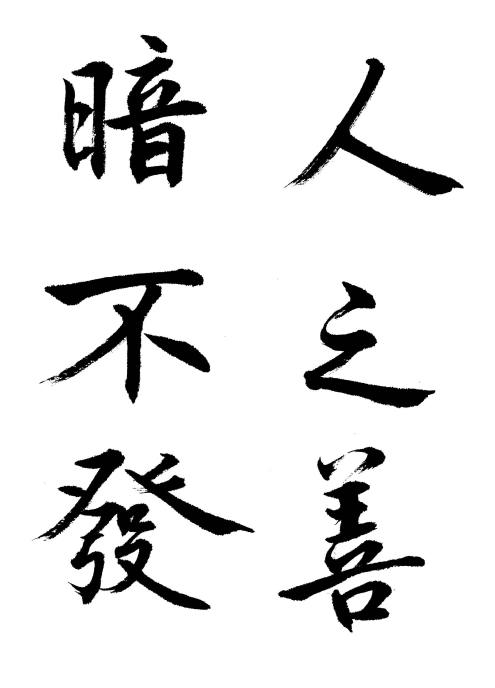 人之善
暗不發